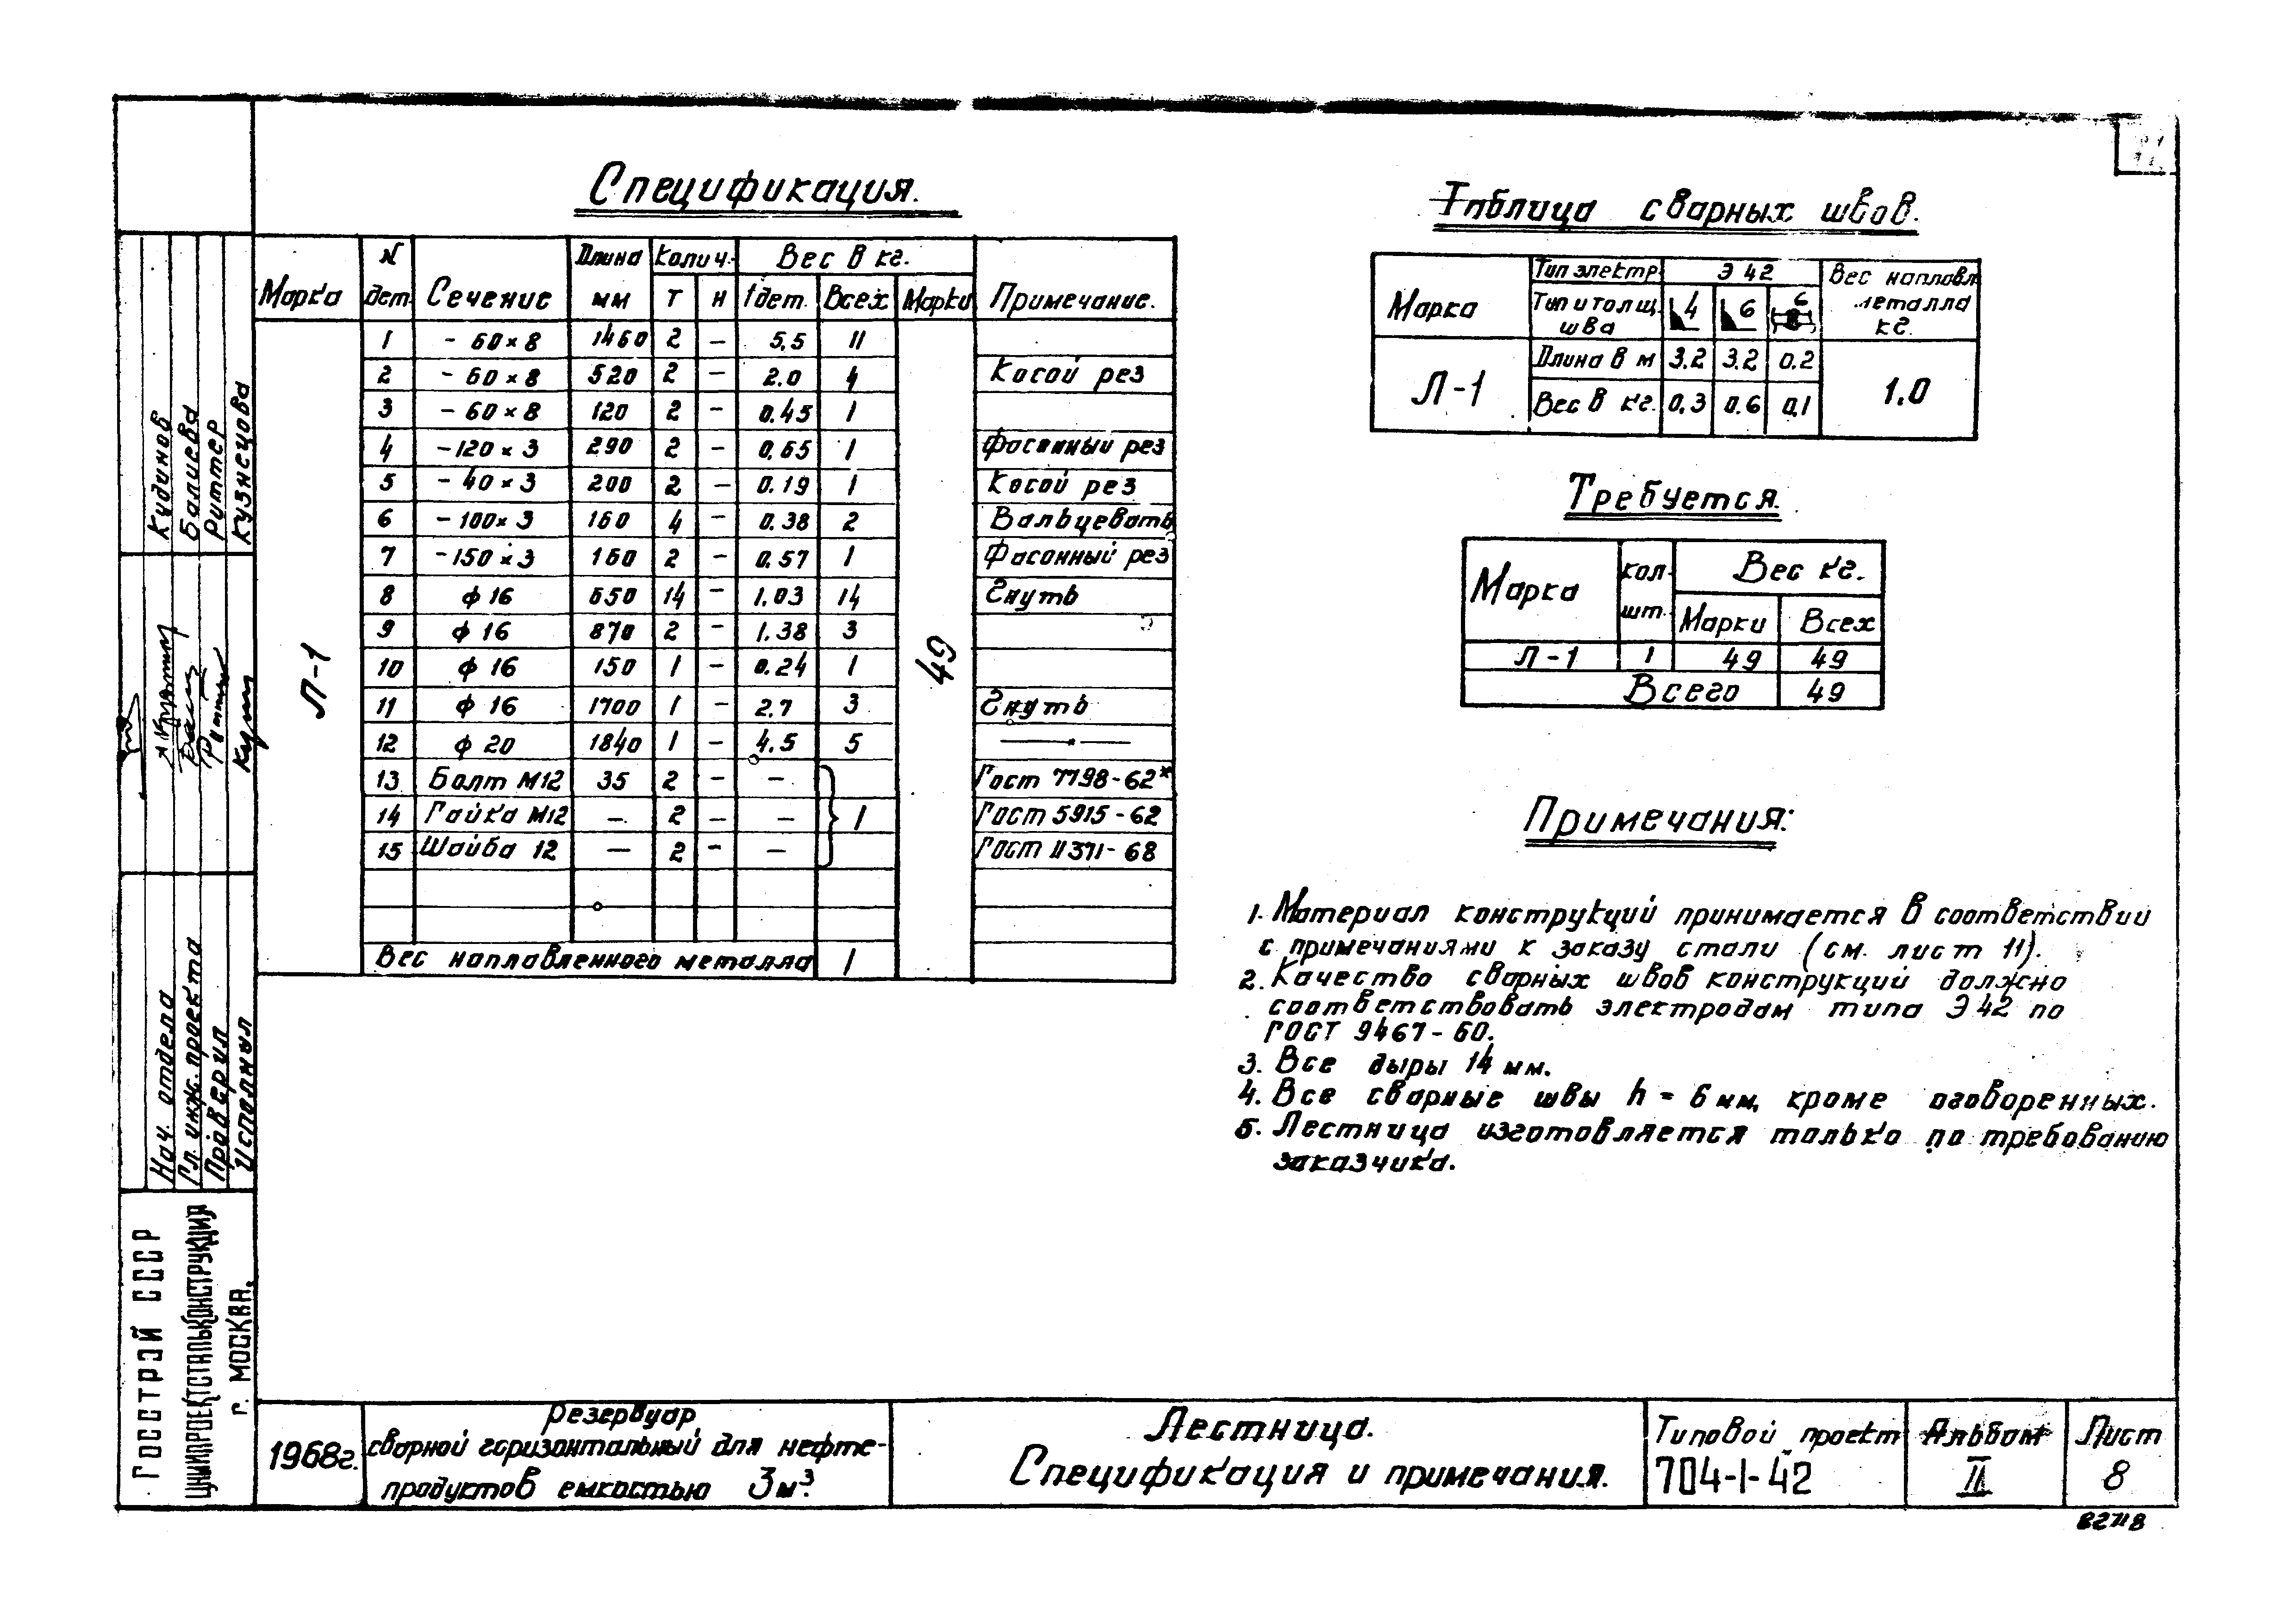 Спецификация.
Марка
N дет.
Сечение
Длина мм
Колич.
Т
Н
Вес в кг.
1 дет.
Всех
Марки
Примечание.
Л-1
49
1 - 60×8 1460 2 — 5,5 11
2 - 60×8 520 2 — 2.0 4 Косой рез
3 - 60×8 120 2 — 0.45 1
4 -120×3 290 2 — 0,65 1 Фасонный рез
5 - 40×3 200 2 — 0.19 1 Косой рез
6 -100×3 160 4 — 0.38 2 Вальцевать
7 -150×3 160 2 — 0,57 1 Фасонный рез
8 ф 16 650 14 — 1.03 14 Гнуть
9 ф 16 870 2 — 1.38 3
10 ф 16 150 1 — 0.24 1
11 ф 16 1700 1 — 2.7 3 Гнуть
12 ф 20 1840 1 — 4.5 5 —"—
13 Болт М12 35 2 — — Гост 7798-62*
14 Гайка М12 — 2 — — 1 Гост 5915-62
15 Шайба 12 — 2 — — Гост 11371-68
Вес наплавленного металла 1
Таблица сварных швов.
Марка
Тип электр. Э 42
Вес наплавл. металла кг.
Тип и толщ. шва 4 6 6
Л-1
Длина в м 3.2 3.2 0.2
Вес в кг. 0.3 0.6 0.1
1.0
Требуется.
Марка
кол. шт.
Вес кг.
Марки Всех
Л-1 1 49 49
Всего 49
Примечания:
1. Материал конструкций принимается в соответствии
с примечаниями к заказу стали (см. лист 11).
2. Качество сварных швов конструкций должно
соответствовать электродам типа Э 42 по
ГОСТ 9467-60.
3. Все дыры 14 мм.
4. Все сварные швы h = 6 мм, кроме оговоренных.
5. Лестница изготовляется только по требованию
заказчика.
Кудинов
Балиева
Руттер
Кузнецова
Нач. отдела
Гл. инж. проекта
Проверил
Исполнил
ГОССТРОЙ СССР
ЦНИИПРОЕКТСТАЛЬКОНСТРУКЦИЯ
г. МОСКВА.
1968г.
Резервуар
сварной горизонтальный для нефте-
продуктов емкостью 3м³.
Лестница.
Спецификация и примечания.
Типовой проект
704-1-42
Альбом
II
Лист
8